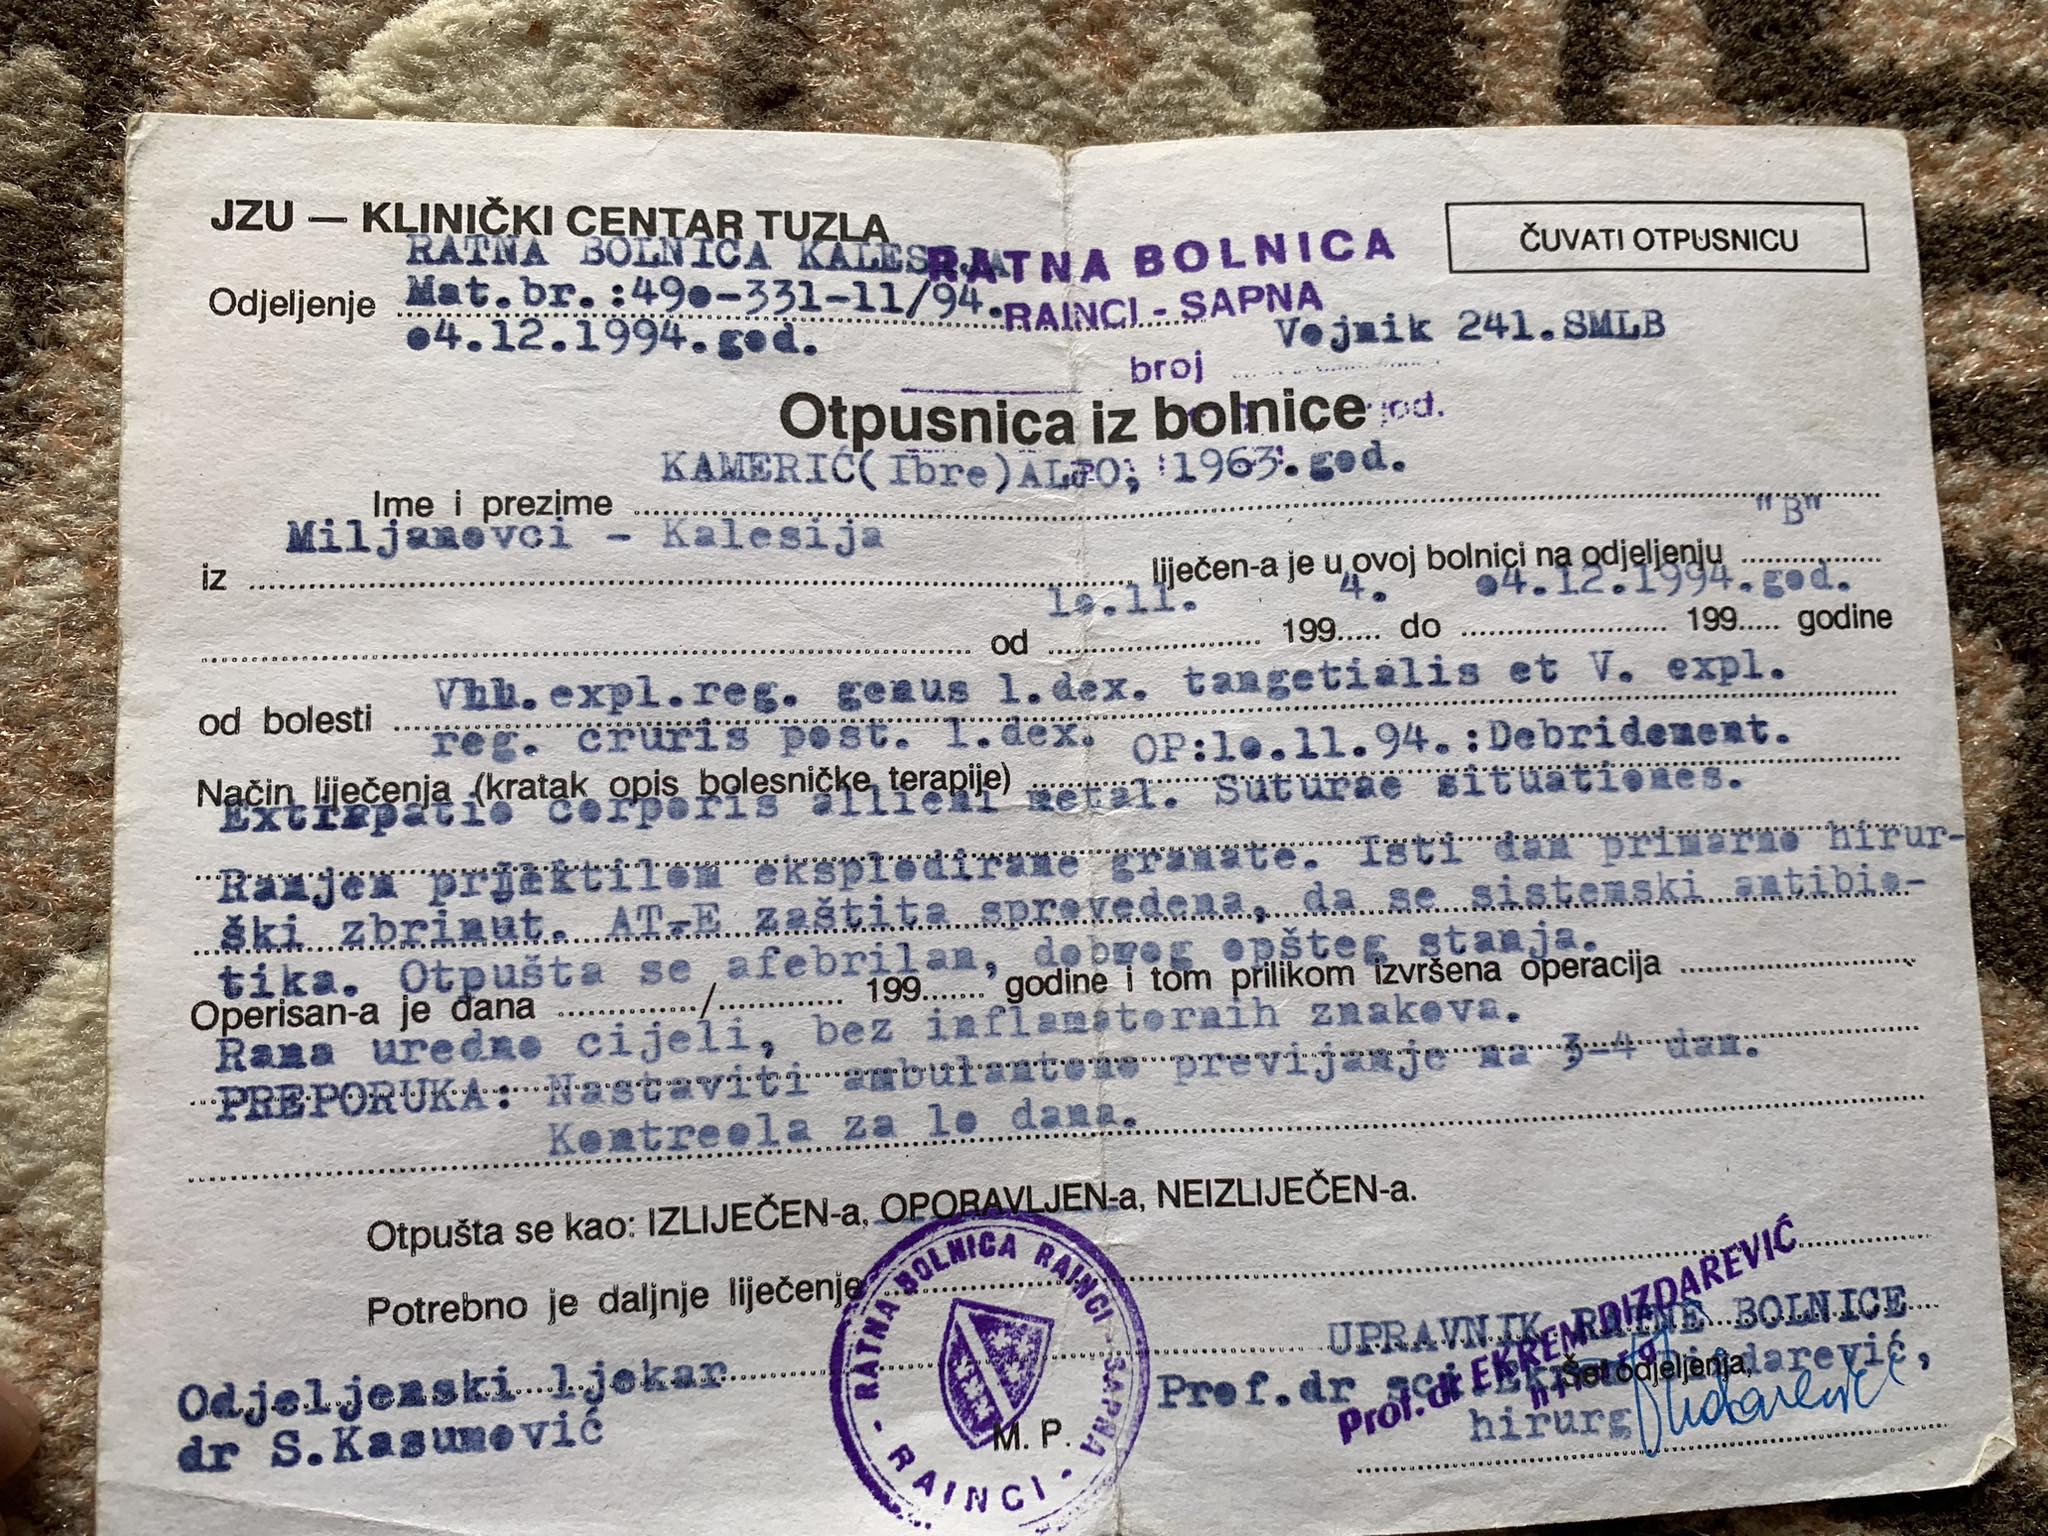 JZU — KLINIČKI CENTAR TUZLA
RATNA BOLNICA KALESIJA
RATNA BOLNICA
ČUVATI OTPUSNICU
Odjeljenje Mat.br.:490-331-11/94.
RAINCI - SAPNA
04.12.1994.god.
Vojnik 241.SMLB
broj
Otpusnica iz bolnice
god.
KAMERIĆ(Ibre)ALJO, 1963.god.
Ime i prezime
Miljanovci - Kalesija
"B"
iz liječen-a je u ovoj bolnici na odjeljenju
10.11. 4. 04.12.1994.god.
od 199..... do 199..... godine
Vhh.expl.reg. genus l.dex. tangetialis et V. expl.
od bolesti
reg. cruris post. l.dex. OP:10.11.94.:Debridement.
Način liječenja (kratak opis bolesničke terapije)
Extirpatio corporis allieni metal. Suturae situationes.
Ranjen projektilom eksplodirane granate. Isti dan primarno hirur-
ški zbrinut. AT-E zaštita sprovedena, da se sistemski antibio-
tika. Otpušta se afebrilan, dobrog opšteg stanja.
Operisan-a je dana ............./............. 199....... godine i tom prilikom izvršena operacija
Rana uredno cijeli, bez inflamatornih znakova.
PREPORUKA: Nastaviti ambulantono previjanje na 3-4 dan.
Kontreola za 10 dana.
Otpušta se kao: IZLIJEČEN-a, OPORAVLJEN-a, NEIZLIJEČEN-a.
Potrebno je daljnje liječenje
RATNA BOLNICA RAINCI - SAPNA - RAINCI -
UPRAVNIK RATNE BOLNICE
Prof. dr EKREM DIZDAREVIĆ
Odjeljenski ljekar
Prof.dr sci. Ekrem Dizdarević,
Šef odjeljenja,
dr S.Kasumović
M. P.
hirurg
Dizdarević